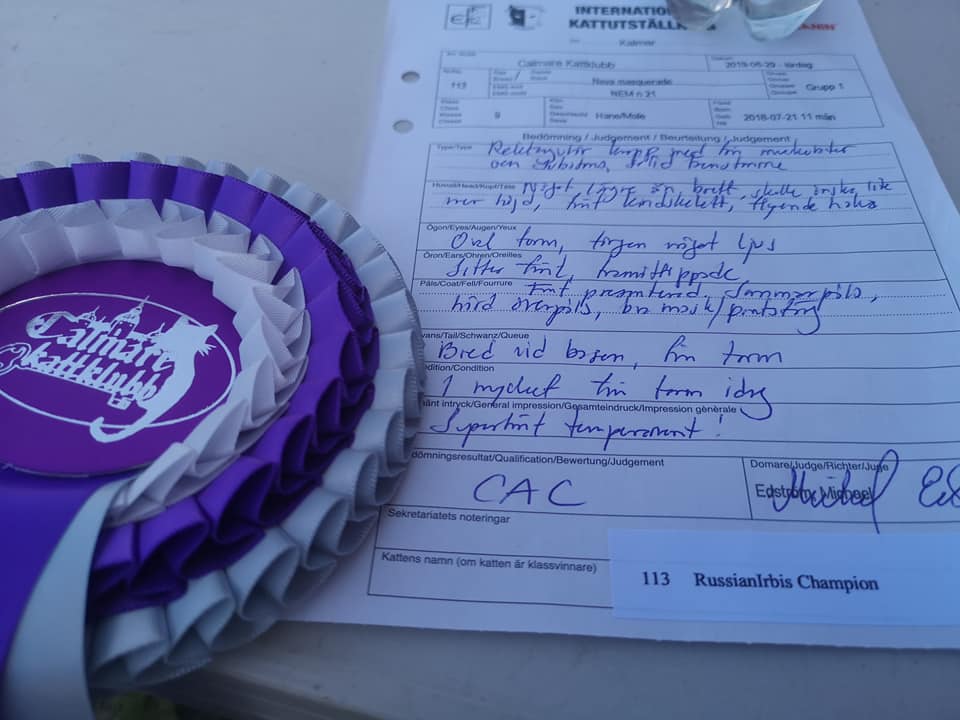 INTERNATIO
KATTUTSTÄLL
Kalmar
Calmare Kattklubb
2019-06-29 - lördag
113
Neva masquerade
NEM n 21
Grupp 1
9
Hane/Male
2018-07-21 11 mån
Bedömning / Judgement / Beurteilung / Judgement
Type/Type
kropp med fin muskulatur
och
Huvud/Head/Kopf/Tête Något längre än brett, skulle önska lite
mer höjd, fint
Ögon/Eyes/Augen/Yeux
Oval form, färgen något ljus
Öron/Ears/Ohren/Oreilles
Sitter fint,
Päls/Coat/Fell/Fourrure
Fint presenterad, Sommarpäls,
hård överpäls, bra mask/
vans/Tail/Schwanz/Queue
Bred vid basen, fin form
dition/Condition
I mycket fin form idag
mänt intryck/General impression/Gesamteindruck/Impression gènèrale
Superfint temperament!
dömningsresultat/Qualification/Bewertung/Judgement
Domare/Judge/Richter/Juge
CAC
Edström, Michael
Sekretariatets noteringar
Kattens namn (om katten är klassvinnare)
113 RussianIrbis Champion
Calmare
kattklubb